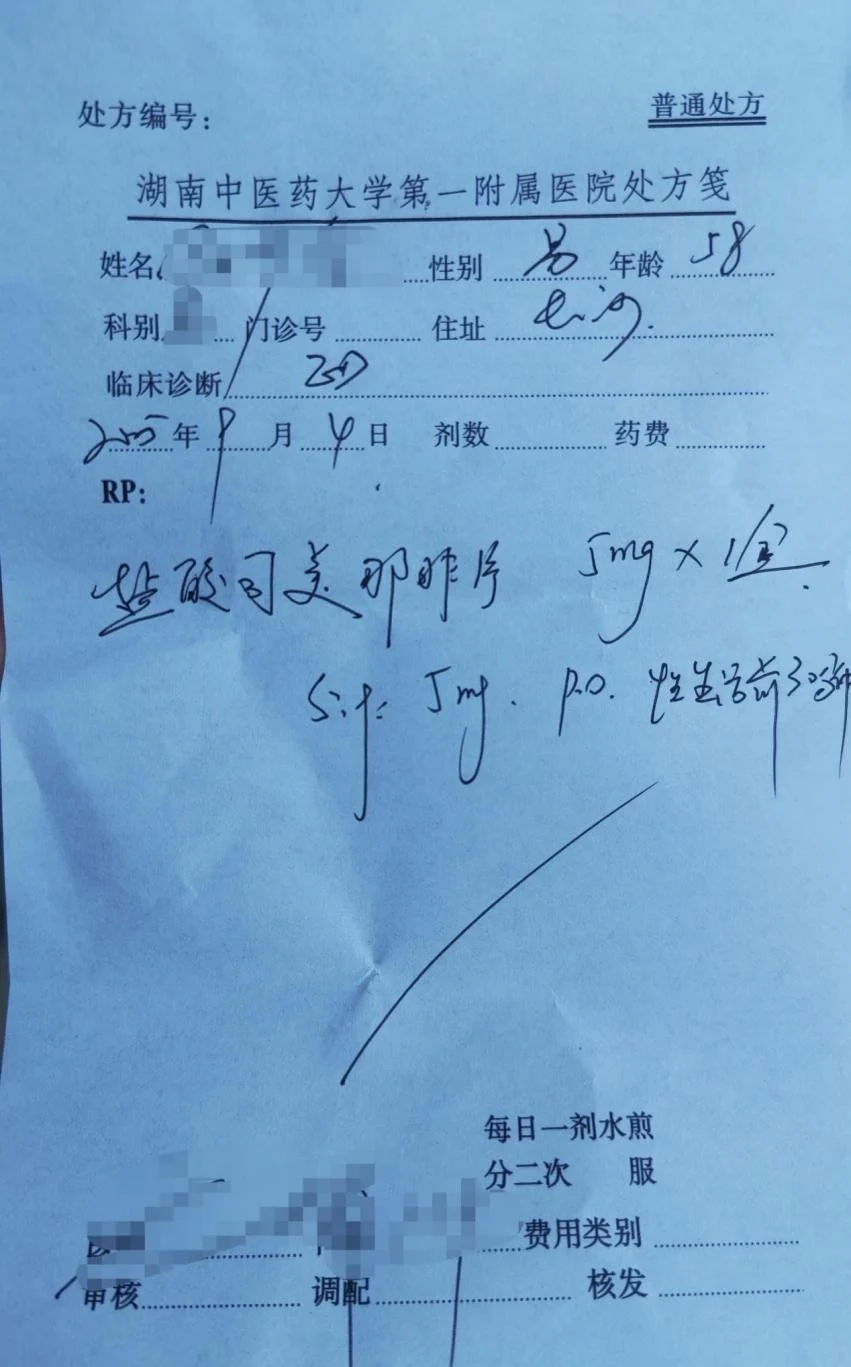 处方编号:
普通处方
湖南中医药大学第一附属医院处方笺
姓名 性别 男 年龄 58
科别 门诊号 住址 长沙.
临床诊断 ED
2025年9月4日 剂数 药费
RP:
盐酸司美那非片 5mg×1盒
Sig: 5mg. p.o. 性生活前30分钟
每日一剂水煎
分二次 服
费用类别
审核 调配 核发